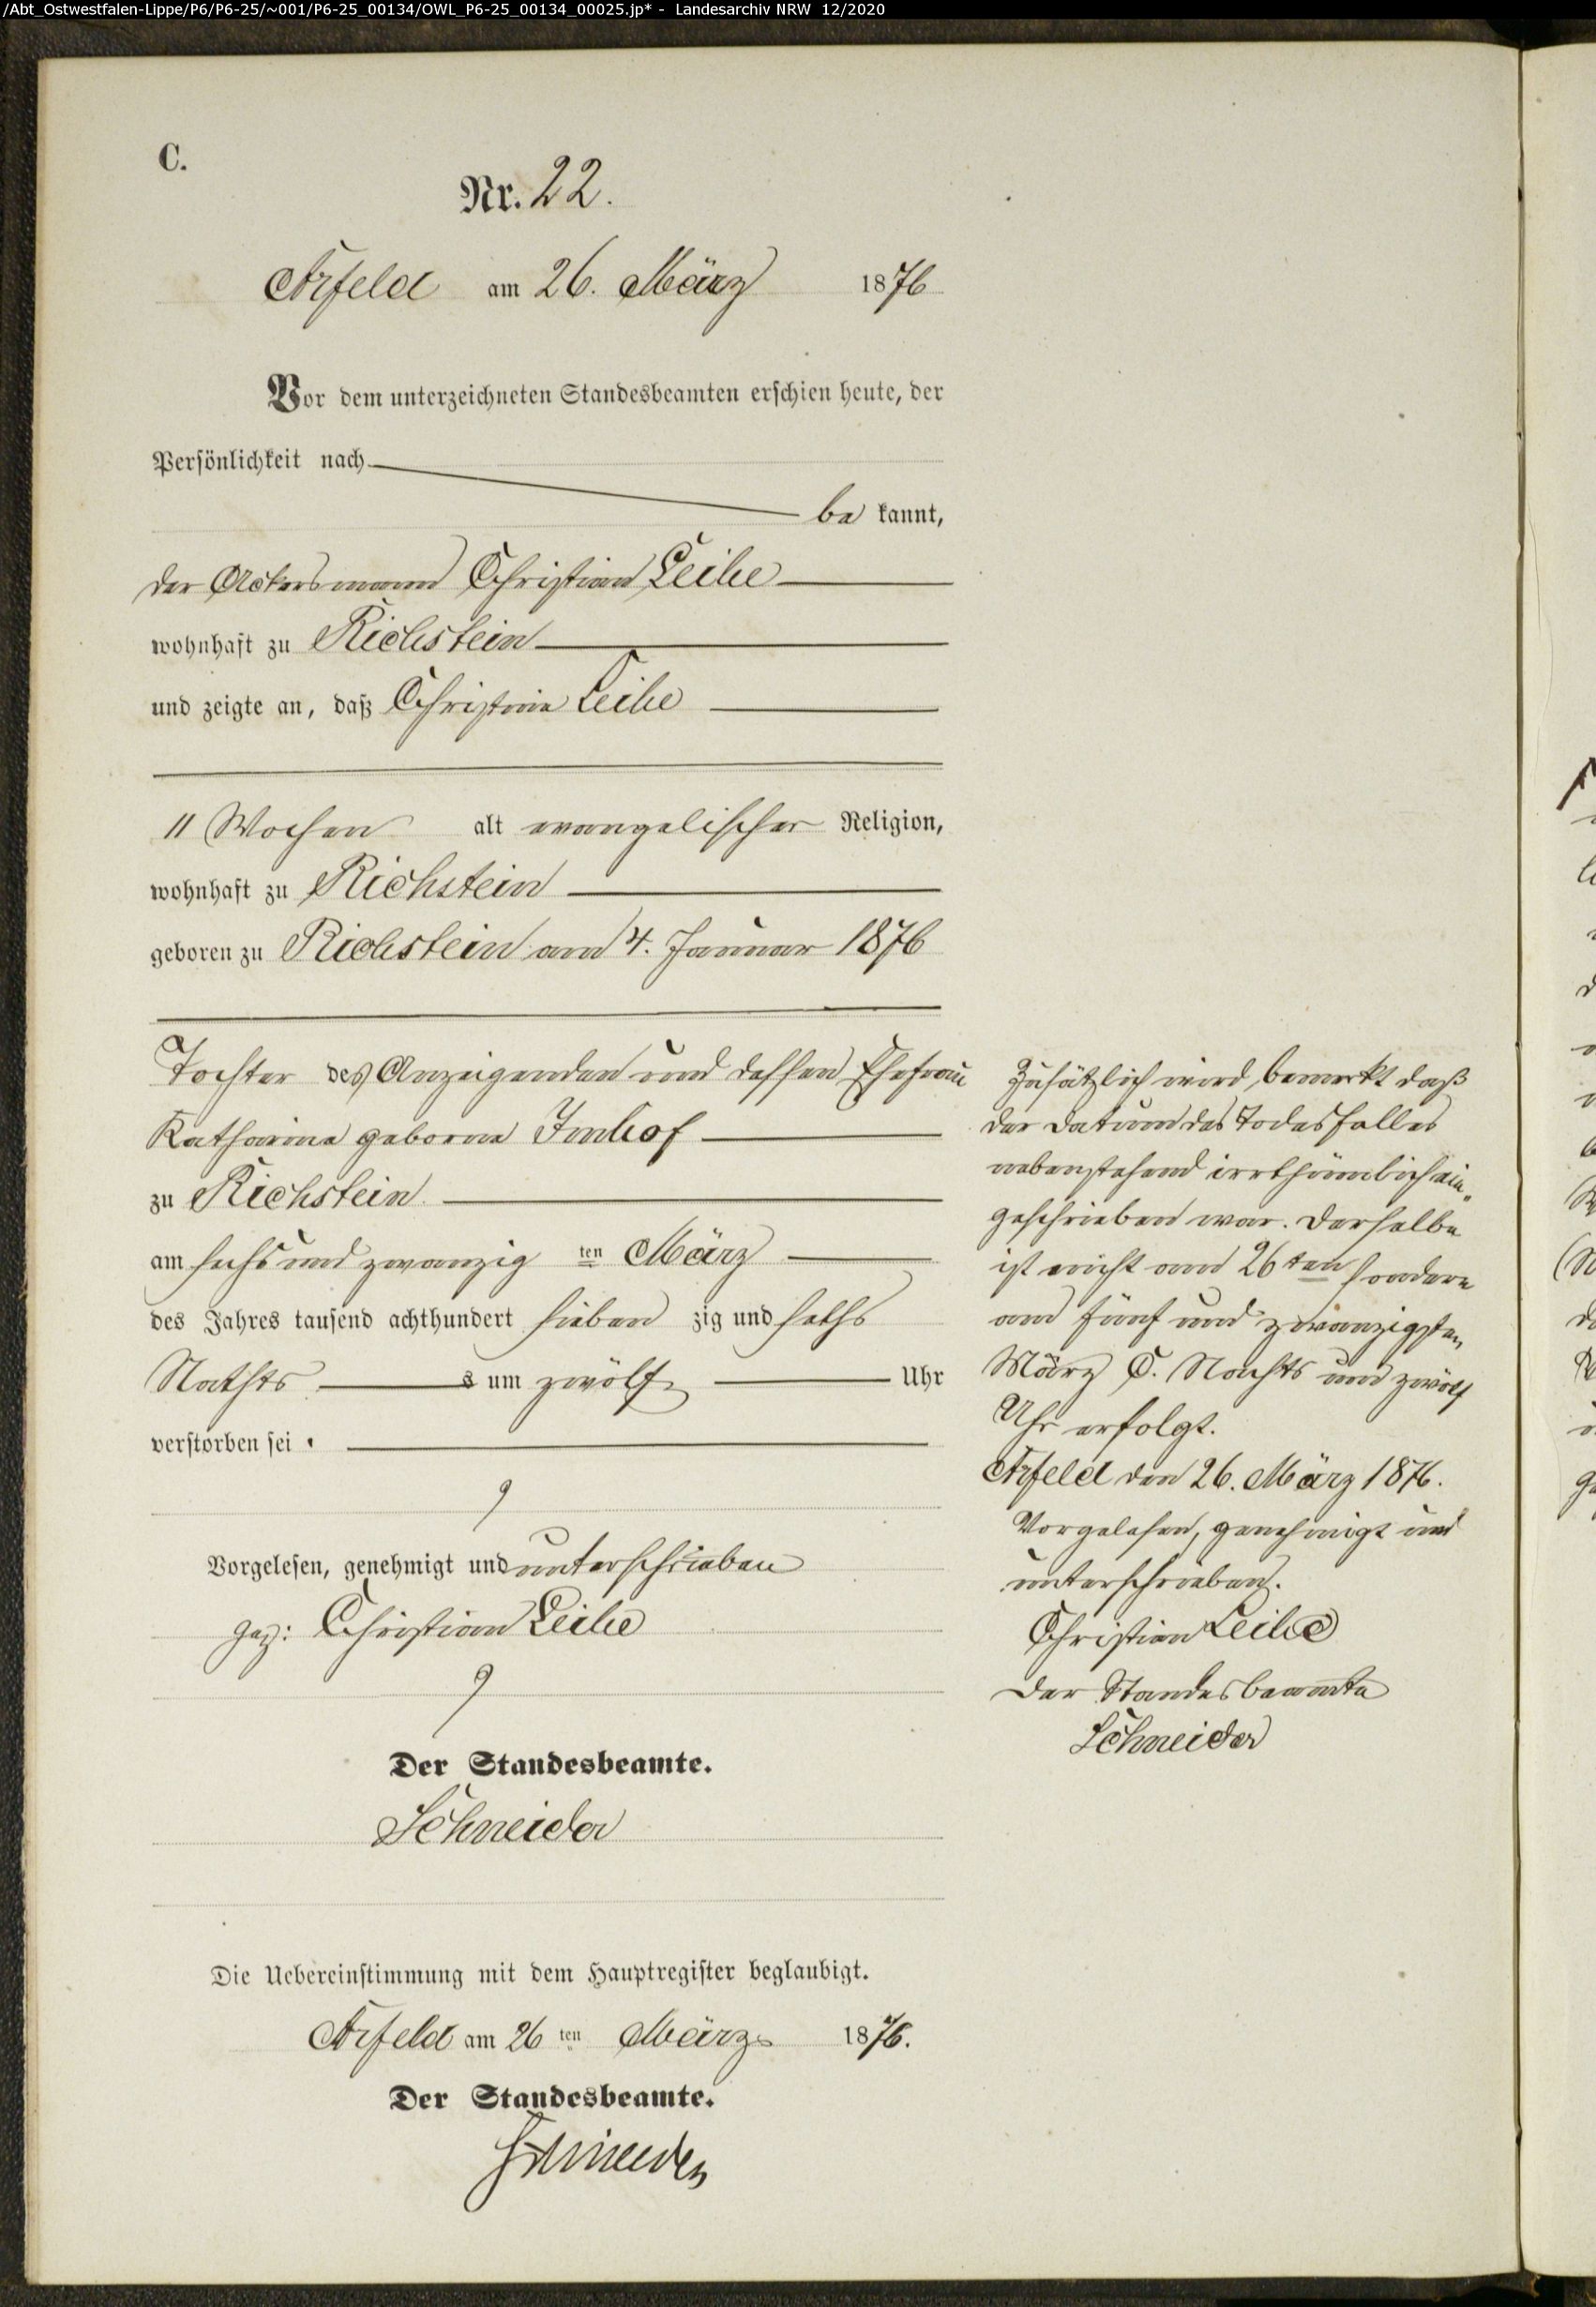 /Abt_Ostwestfalen-Lippe/P6/P6-25/~001/P6-25_00134/OWL_P6-25_00134_00025.jp* - Landesarchiv NRW 12/2020
C.
Nr. 22.
Arfeld am 26. März 1876
Vor dem unterzeichneten Standesbeamten erschien heute, der
Persönlichkeit nach
be kannt,
der Ackersmann Christian Leihe
wohnhaft zu Richstein
und zeigte an, daß Christina Leihe
11 Wochen alt evangelischer Religion,
wohnhaft zu Richstein
geboren zu Richstein am 4. Januar 1876
Tochter des Anzeigenden und dessen Ehefrau
Katharina geborne Imhof
zu Richstein
am sechs und zwanzig ten März
des Jahres tausend achthundert sieben zig und sechs
Nachts s um zwölf Uhr
verstorben sei.
Vorgelesen, genehmigt und unterschrieben
gez: Christian Leihe
Der Standesbeamte.
Schneider
Die Uebereinstimmung mit dem Hauptregister beglaubigt.
Arfeld am 26 ten März 1876.
Der Standesbeamte.
Schneider
Zusätzlich wird bemerkt daß
der Datum des Todesfalles
nebenstehend irrthümlich ein-
geschrieben war. Derselbe
ist nicht am 26ten sondern
am fünf und zwanzigsten
März C. Nachts um zwölf
Uhr erfolgt.
Arfeld den 26. März 1876.
Vorgelesen, genehmigt und
unterschrieben.
Christian Leihe
Der Standesbeamte
Schneider